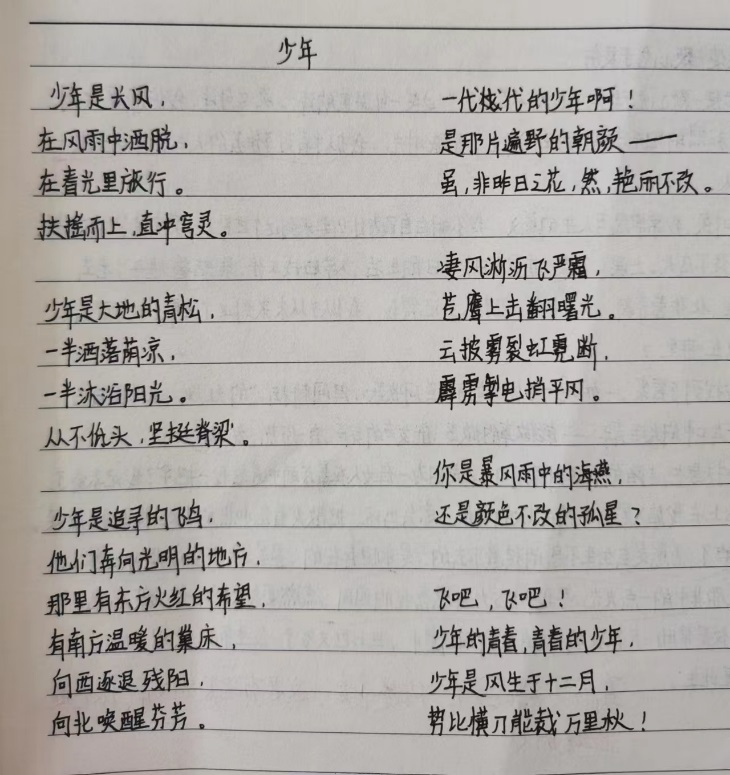 少年
少年是长风，
在风雨中洒脱，
在春光里旅行。
扶摇而上，直冲穹灵。
少年是大地的青松，
一半洒落荫凉，
一半沐浴阳光。
从不低头，坚挺脊梁。
少年是追寻的飞鸟，
他们奔向光明的地方，
那里有东方火红的希望，
有南方温暖的巢床，
向西逐退残阳，
向北唤醒芬芳。
一代代的少年啊！
是那片遍野的朝颜——
虽，非昨日之花，然，艳丽不改。
凄风淅沥飞严霜，
苍鹰上击翻曙光。
云披雾裂虹霓断，
霹雳掣电捎平冈。
你是暴风雨中的海燕，
还是颜色不改的孤星？
飞吧，飞吧！
少年的青春，青春的少年，
少年是风生于十二月，
势比横刀能裁万里秋！